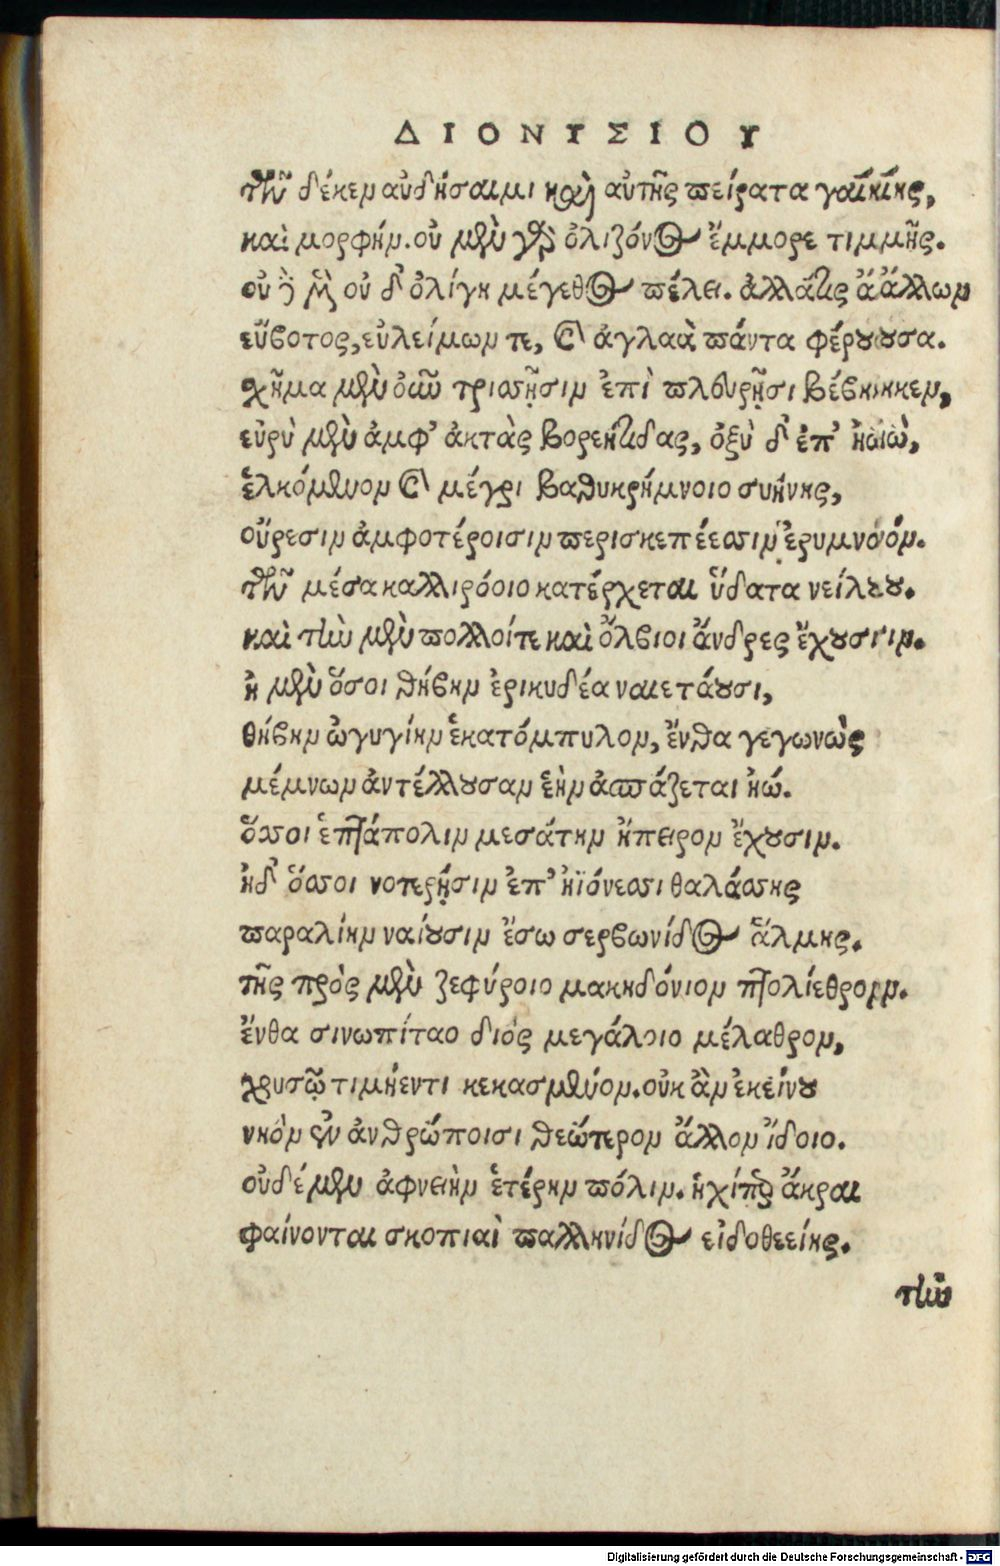 ΔΙΟΝΥΣΙΟΥ
τῆς δέ κεν αὐδήσαιμι καὶ αὐτῆς πείρατα γαίης,
καὶ μορφήν. οὐ μὲν γὰρ ὀλίζονος ἔμμορε τιμμῆς.
οὐ γὰρ μὴν οὐδ' ὀλίγη μέγεθος πέλει. ἀλλά τις ἄλλων
εὔβοτος, εὐλείμων τε, καὶ ἀγλαὰ πάντα φέρουσα.
χῆμα μὲν οὖν τρισσῇσιν ἐπὶ πλευρῇσι βέβηκεν,
εὐρὺ μὲν ἀμφ' ἀκτὰς βορηΐτιδας, ὀξὺ δ' ἐπ' ἠῶ,
ἑλκόμενον καὶ μέχρι βαθυκρήμνοιο συήνης,
οὔρεσιν ἀμφοτέροισιν περισκεπέεσσιν ἐρυμνόν.
τῆς μέσα καλλιρόοιο κατέρχεται ὕδατα νείλου.
καὶ τὴν μὲν πολλοί τε καὶ ὄλβιοι ἄνδρες ἔχουσιν.
ἠ μὲν ὅσοι θήβην ἐρικυδέα ναιετάουσι,
θήβην ὠγυγίην ἑκατόμπυλον, ἔνθα γεγωνὼς
μέμνων ἀντέλλουσαν ἑὴν ἀσπάζεται ἠώ.
ὅσσοι ἑπτάπολιν μεσάτην ἤπειρον ἔχουσιν.
ἠδ' ὅσσοι νοτερῇσιν ἐπ' ἠϊόνεσσι θαλάσσης
παραλίην ναίουσιν ἔσω σερβωνίδος ἅλμης.
τῆς πρὸς μὲν ζεφύροιο μακηδόνιον πτολίεθρον.
ἔνθα σινωπίταο διὸς μεγάλοιο μέλαθρον,
χρυσῷ τιμήεντι κεκασμένον. οὐκ ἂν ἐκείνου
νηὸν ἐν ἀνθρώποισι θεώτερον ἄλλον ἴδοιο.
οὐδέ μὲν ἀφνειὴν ἑτέρην πόλιν. ἧχί περ ἄκραι
φαίνονται σκοπιαὶ παλληνίδος εἰδοθεείης.
τὴν
Digitalisierung gefördert durch die Deutsche Forschungsgemeinschaft - DFG